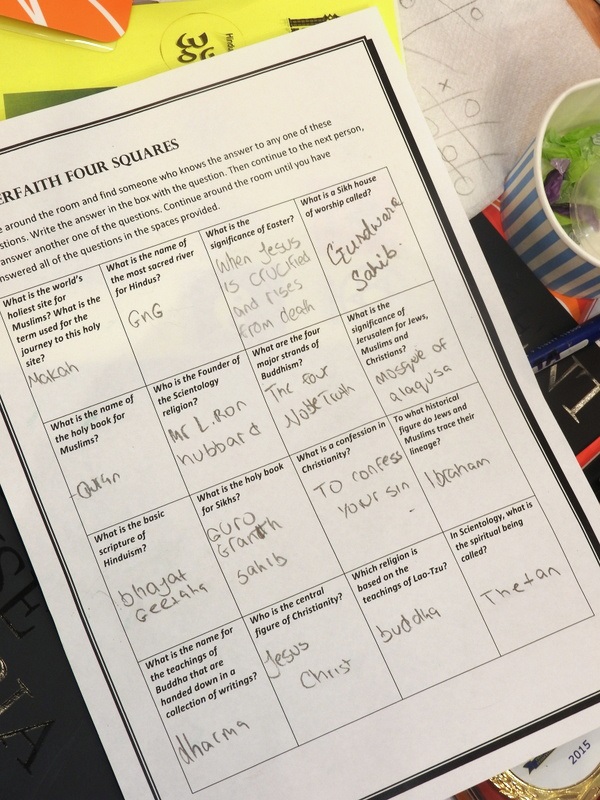 Hindu
ERFAITH FOUR SQUARES
e around the room and find someone who knows the answer to any one of these
stions. Write the answer in the box with the question. Then continue to the next person,
answer another one of the questions. Continue around the room until you have
nswered all of the questions in the spaces provided.
What is the world's
holiest site for
Muslims? What is the
term used for the
journey to this holy
site?
Makah
What is the name of
the most sacred river
for Hindus?
GnG
What is the
significance of Easter?
When Jesus
is crucified
and rises
from death
What is a Sikh house
of worship called?
Gurdwara
Sahib.
What is the name of
the holy book for
Muslims?
-Quran
Who is the Founder of
the Scientology
religion?
Mr L.Ron
hubbard
What are the four
major strands of
Buddhism?
The four
Noble Truth
What is the
significance of
Jerusalem for Jews,
Muslims and
Christians?
mosque of
alaqusa
What is the basic
scripture of
Hinduism?
bhagat
Geetaha
What is the holy book
for Sikhs?
GURO
Granth
sahib
What is a confession in
Christianity?
To confess
your sin
To what historical
figure do Jews and
Muslims trace their
lineage?
Ibraham
What is the name for
the teachings of
Buddha that are
handed down in a
collection of writings?
dharma
Who is the central
figure of Christianity?
Jesus
Christ
Which religion is
based on the
teachings of Lao-Tzu?
buddha
In Scientology, what is
the spiritual being
called?
Thetan
2015